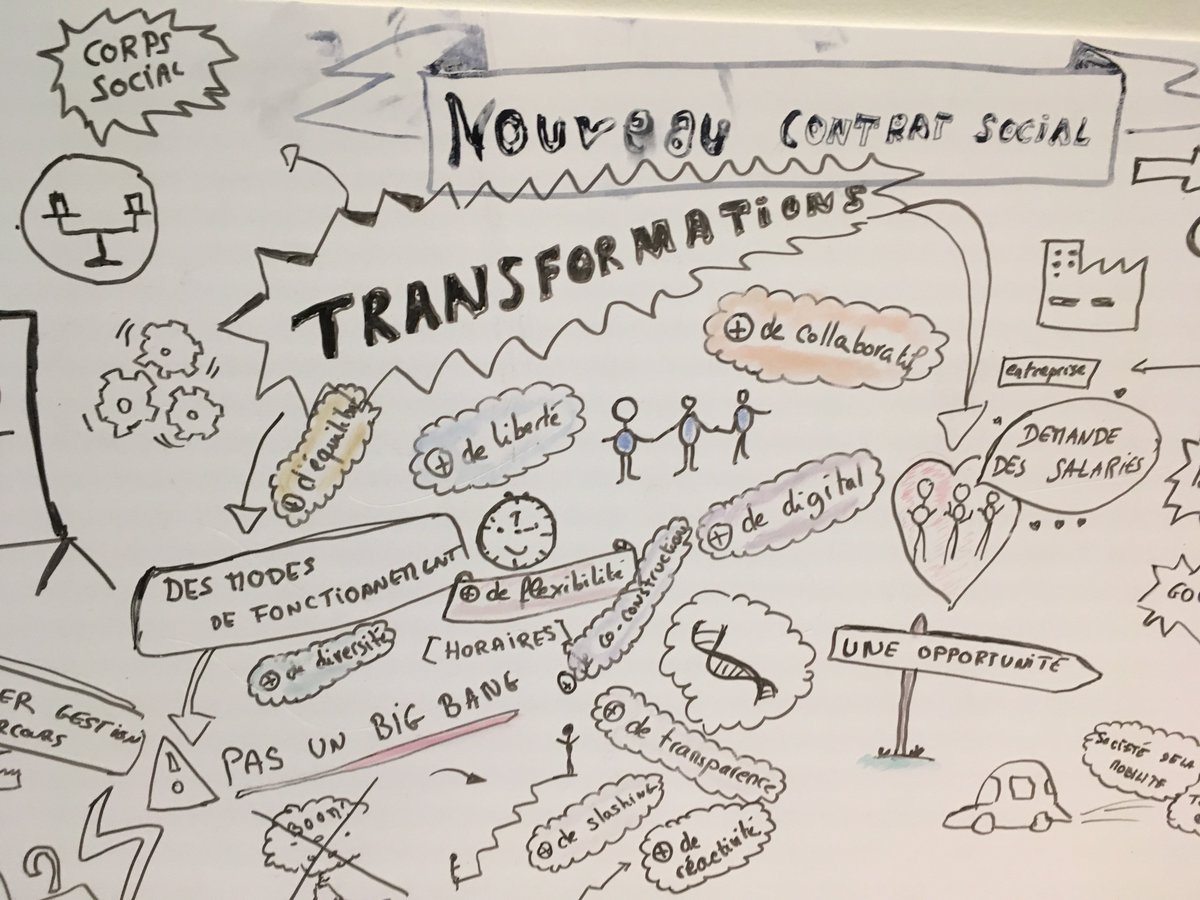 CORPS
SOCIAL
NOUVEAU CONTRAT SOCIAL
TRANSFORMATIONS
+ de collaboratif
entreprise
+ d'équilibre
+ de liberté
DEMANDE
DES SALARIÉS
+ de digital
DES MODES
DE FONCTIONNEMENT
+ de flexibilité
[HORAIRES]
+ de co-construction
+ de diversité
UNE OPPORTUNITÉ
ER GESTION
RCOURS
PAS UN BIG BANG
+ de transparence
SOCIÉTÉ DE LA
MOBILITÉ
BOOM!
+ de slashing
+ de
réactivité
GO